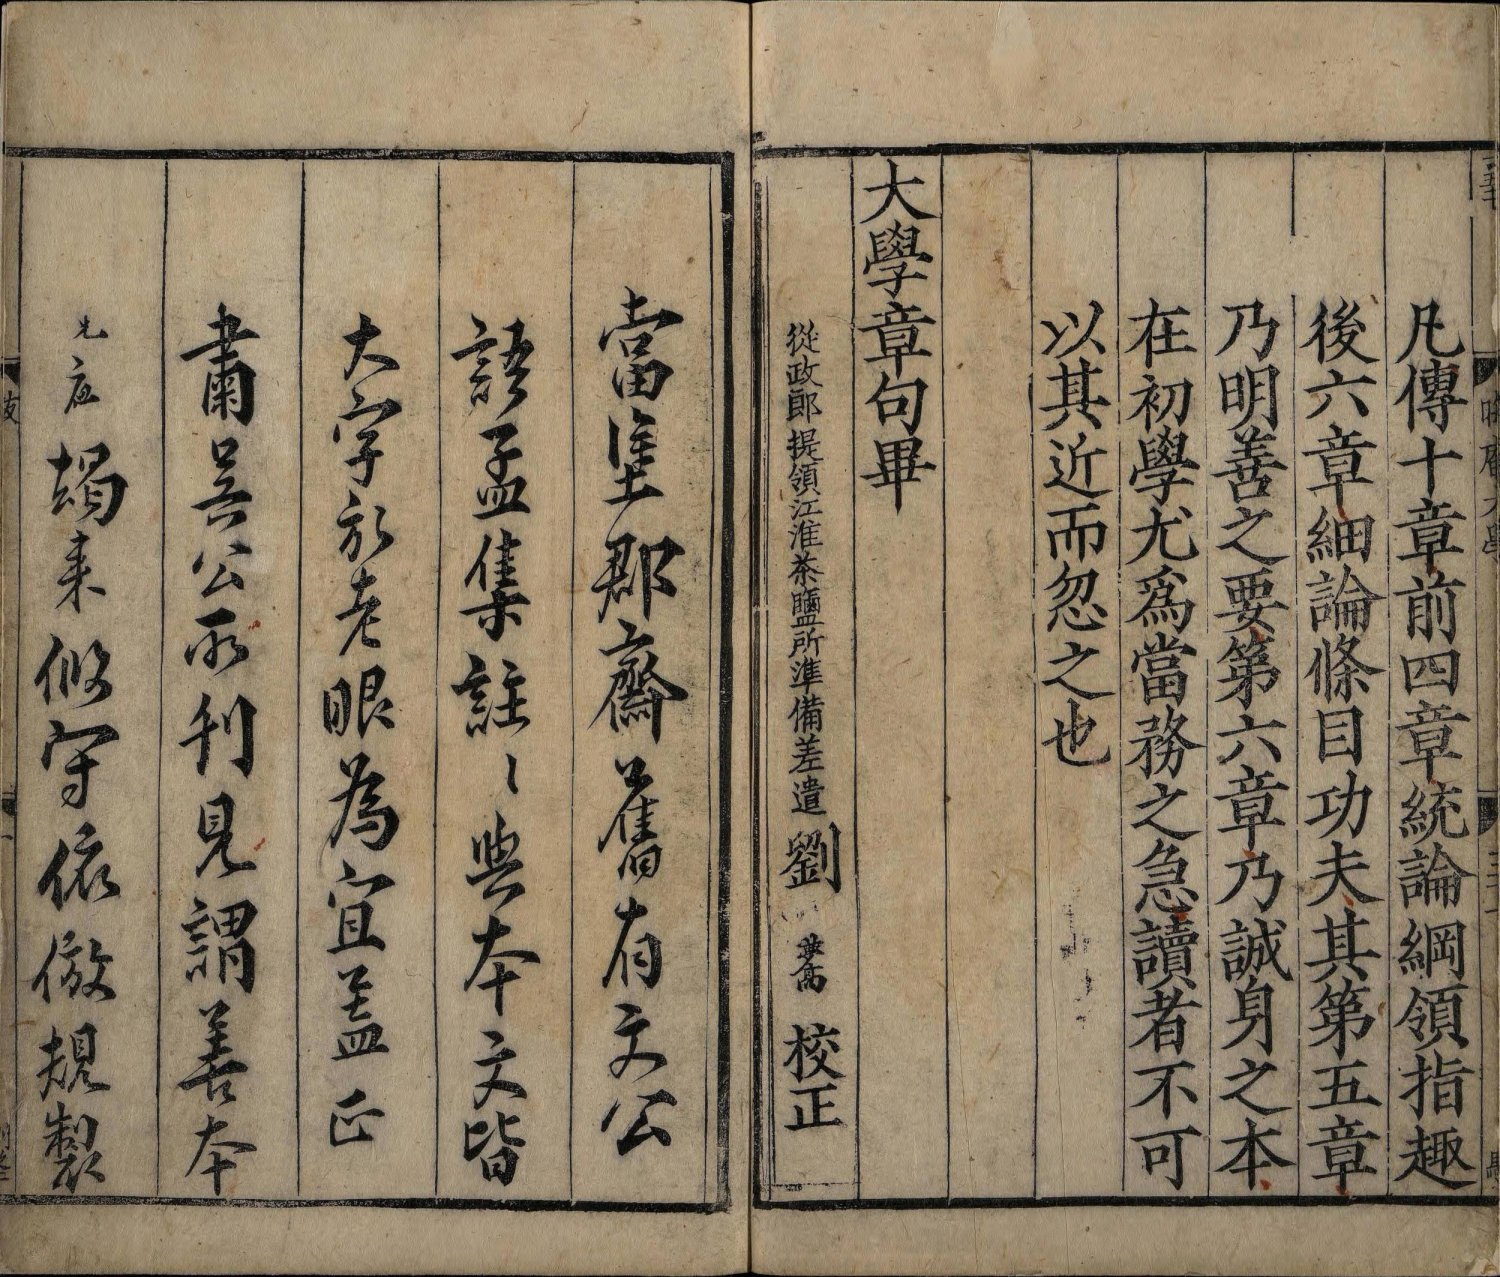 凡傳十章前四章統論綱領指趣
後六章細論條目功夫其第五章
乃明善之要第六章乃誠身之本
在初學尤爲當務之急讀者不可
以其近而忽之也
大學章句畢
從政郎提領江淮茶鹽所準備差遣劉 校正
當塗郡齋舊有文公
語孟集註註與本文皆
大字於老眼為宜盖正
肅吳公所刊見謂善本
光庭猲来攸守依倣規製